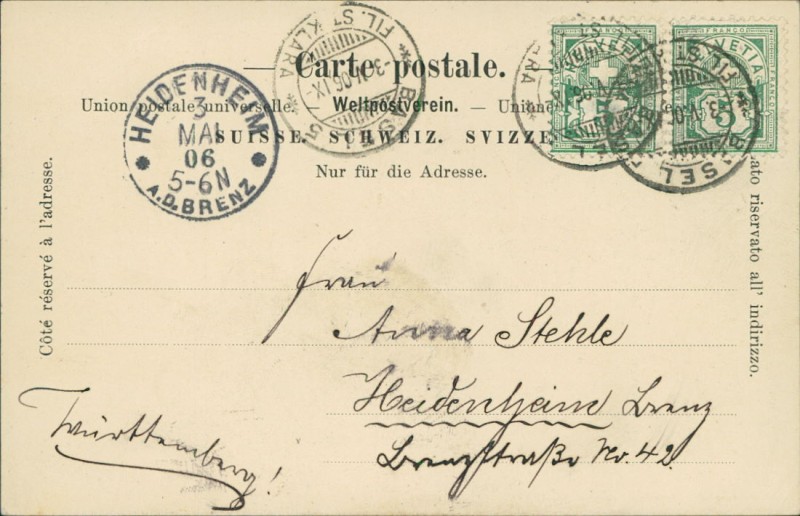 Carte postale.
Union postale universelle. — Weltpostverein. —
SUISSE. SCHWEIZ. SVIZZE
Nur für die Adresse.
Côté réservé à l'adresse.
ato riservato all' indirizzo.
HEIDENHEIM
3
MAI
06
5-6N
A.D. BRENZ
BASEL
FIL. ST KLARA
FRANCO
HELVETIA
5
BASEL
FIL. ST
Frau
Anna Stehle
Heidenheim Brenz
Brenzstraße No. 42
Württemberg!